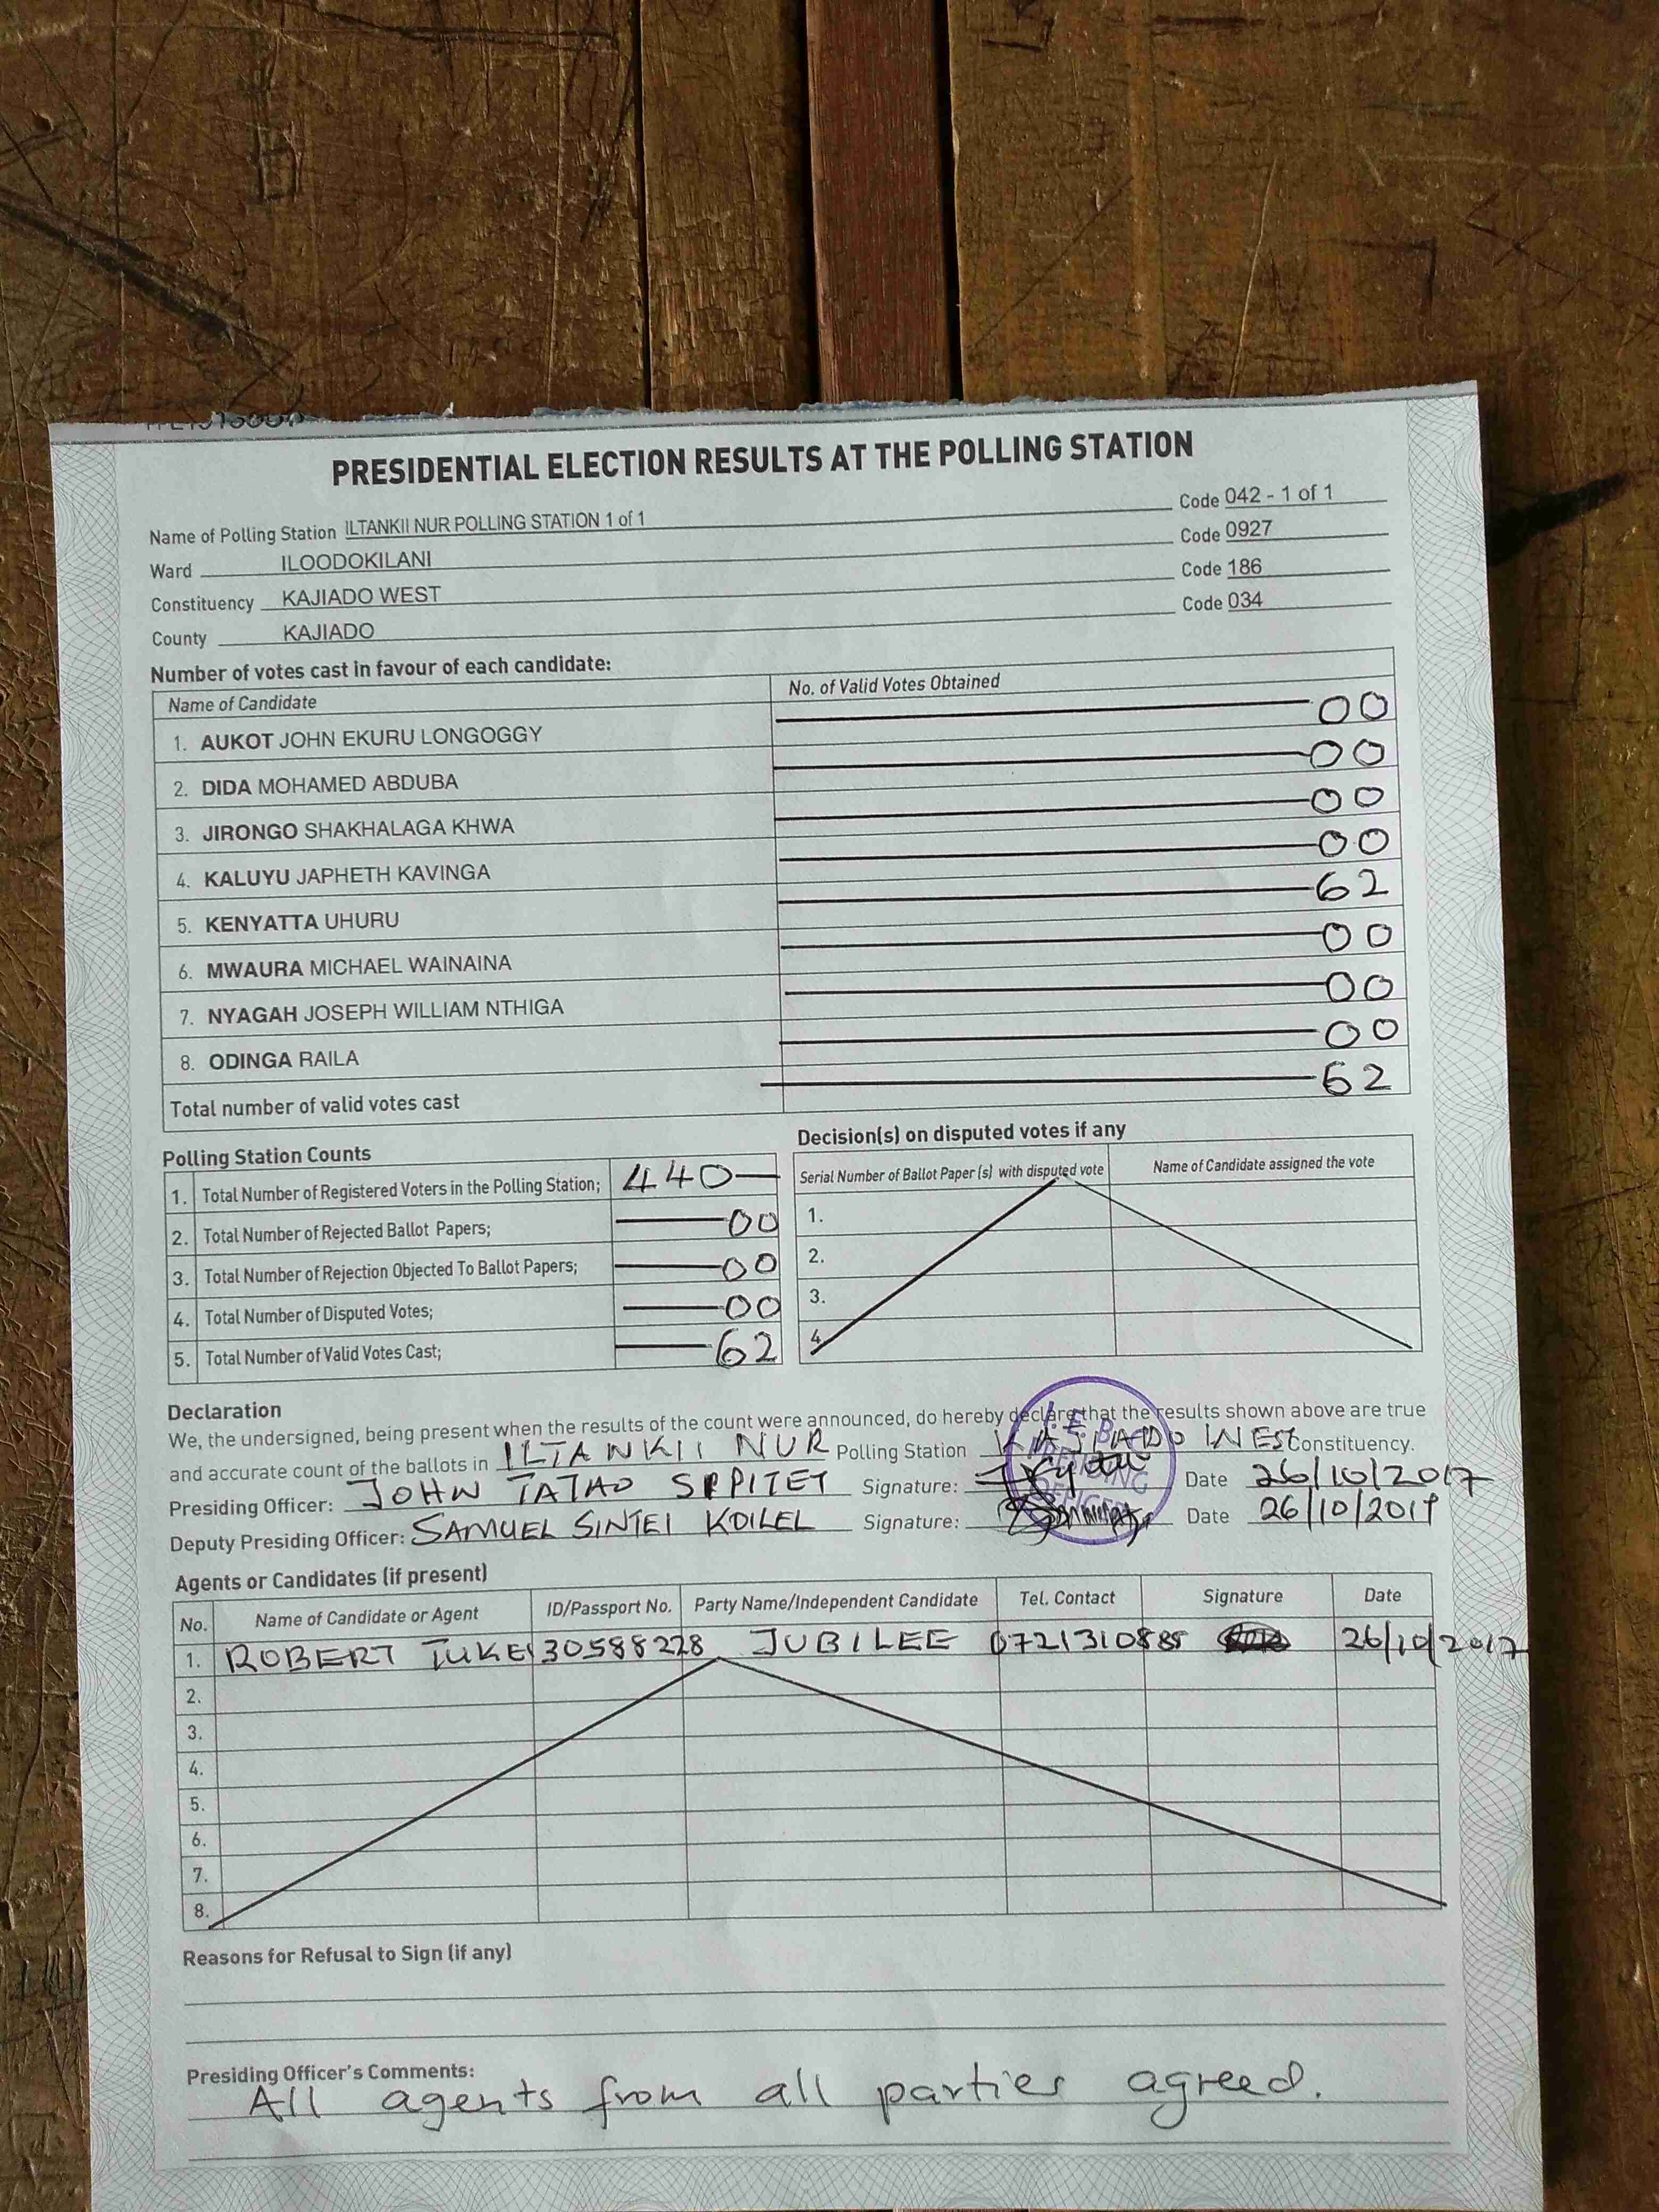 PRESIDENTIAL ELECTION RESULTS AT THE POLLING STATION
Name of Polling Station ILTANKII NUR POLLING STATION 1 of 1 Code 042 - 1 of 1
Ward ILOODOKILANI Code 0927
Constituency KAJIADO WEST Code 186
County KAJIADO Code 034
Number of votes cast in favour of each candidate:
Name of Candidate No. of Valid Votes Obtained
1. AUKOT JOHN EKURU LONGOGGY 00
2. DIDA MOHAMED ABDUBA 00
3. JIRONGO SHAKHALAGA KHWA 00
4. KALUYU JAPHETH KAVINGA 00
5. KENYATTA UHURU 62
6. MWAURA MICHAEL WAINAINA 00
7. NYAGAH JOSEPH WILLIAM NTHIGA 00
8. ODINGA RAILA 00
Total number of valid votes cast 62
Polling Station Counts
1. Total Number of Registered Voters in the Polling Station; 440
2. Total Number of Rejected Ballot Papers; 00
3. Total Number of Rejection Objected To Ballot Papers; 00
4. Total Number of Disputed Votes; 00
5. Total Number of Valid Votes Cast; 62
Decision(s) on disputed votes if any
Serial Number of Ballot Paper (s) with disputed vote Name of Candidate assigned the vote
1.
2.
3.
4.
Declaration
We, the undersigned, being present when the results of the count were announced, do hereby declare that the results shown above are true
and accurate count of the ballots in ILTANKII NUR Polling Station KAJIADO WEST Constituency.
Presiding Officer: JOHN TATAO Signature: Date 26/10/2017
Deputy Presiding Officer: SAMUEL SINTEI KOILEL Signature: Date 26/10/2017
I.E.B.C
PRESIDING
OFFICER
Agents or Candidates (if present)
No. Name of Candidate or Agent ID/Passport No. Party Name/Independent Candidate Tel. Contact Signature Date
1. ROBERT TUKEI 30588228 JUBILEE 0721310885 26/10/2017
2.
3.
4.
5.
6.
7.
8.
Reasons for Refusal to Sign (if any)
Presiding Officer's Comments:
All agents from all parties agreed.